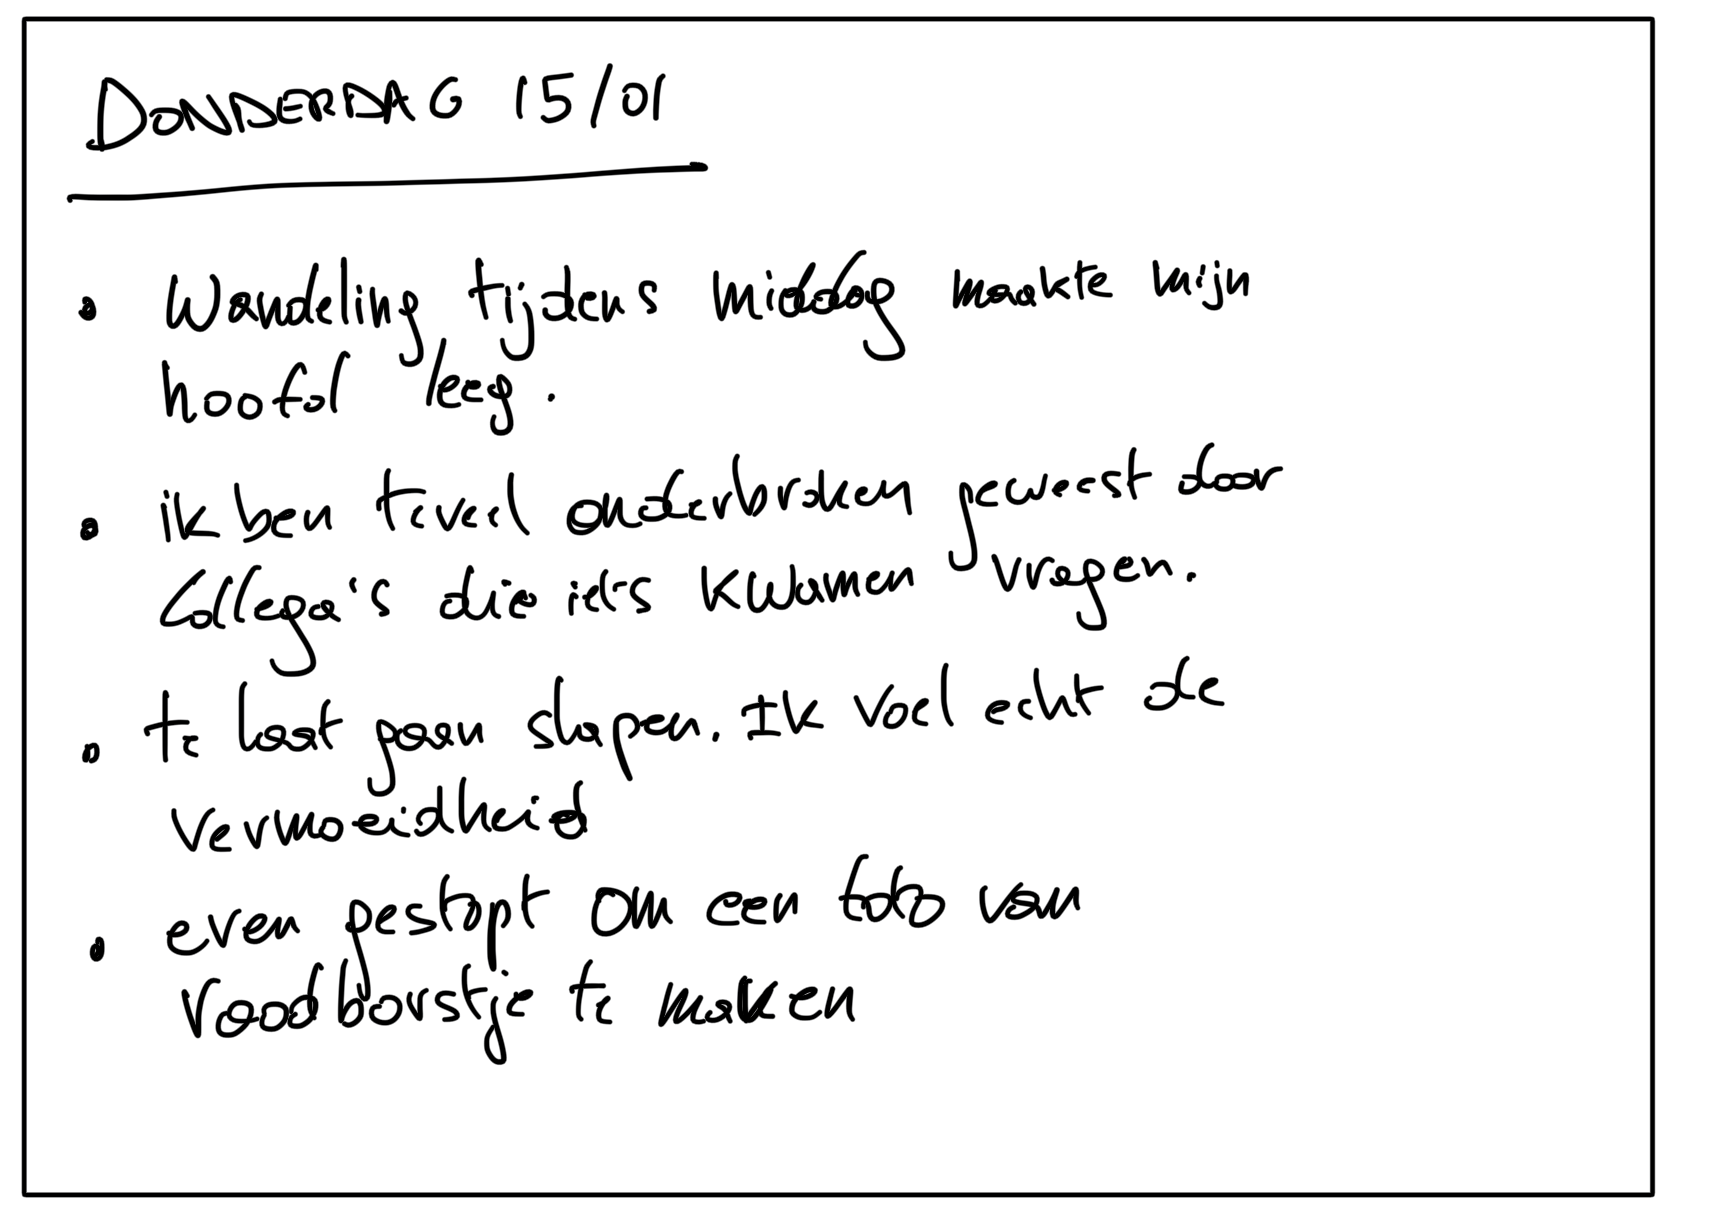 DONDERDAG 15/01
• Wandeling tijdens middag maakte mijn
hoofd leeg.
• ik ben teveel onderbroken geweest door
Collega's die iets kwamen vragen.
• te laat gaan slapen. Ik voel echt de
vermoeidheid
• even gestopt om een foto van
roodborstje te maken